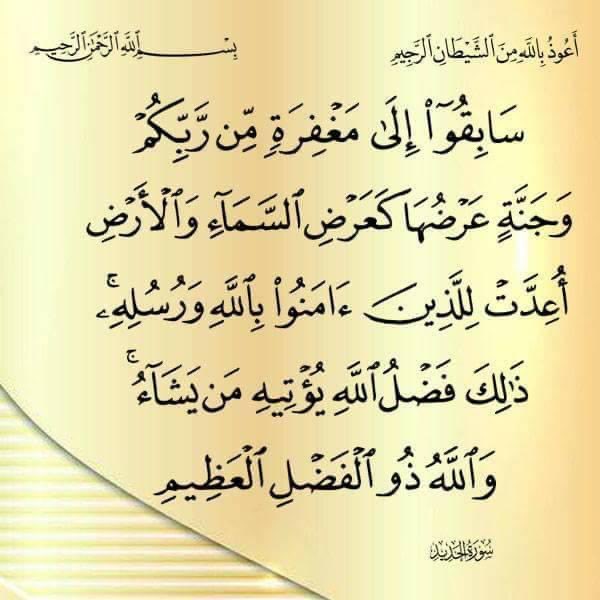 أَعُوذُ بِاللَّهِ مِنَ الشَّيْطَانِ الرَّجِيمِ
بِسْمِ اللَّهِ الرَّحْمَٰنِ الرَّحِيمِ
سَابِقُوٓا۟ إِلَىٰ مَغْفِرَةٍ مِّن رَّبِّكُمْ
وَجَنَّةٍ عَرْضُهَا كَعَرْضِ ٱلسَّمَآءِ وَٱلْأَرْضِ
أُعِدَّتْ لِلَّذِينَ ءَامَنُوا۟ بِٱللَّهِ وَرُسُلِهِۦ ۚ
ذَٰلِكَ فَضْلُ ٱللَّهِ يُؤْتِيهِ مَن يَشَآءُ ۚ
وَٱللَّهُ ذُو ٱلْفَضْلِ ٱلْعَظِيمِ
سُورَةُ الحَدِيد